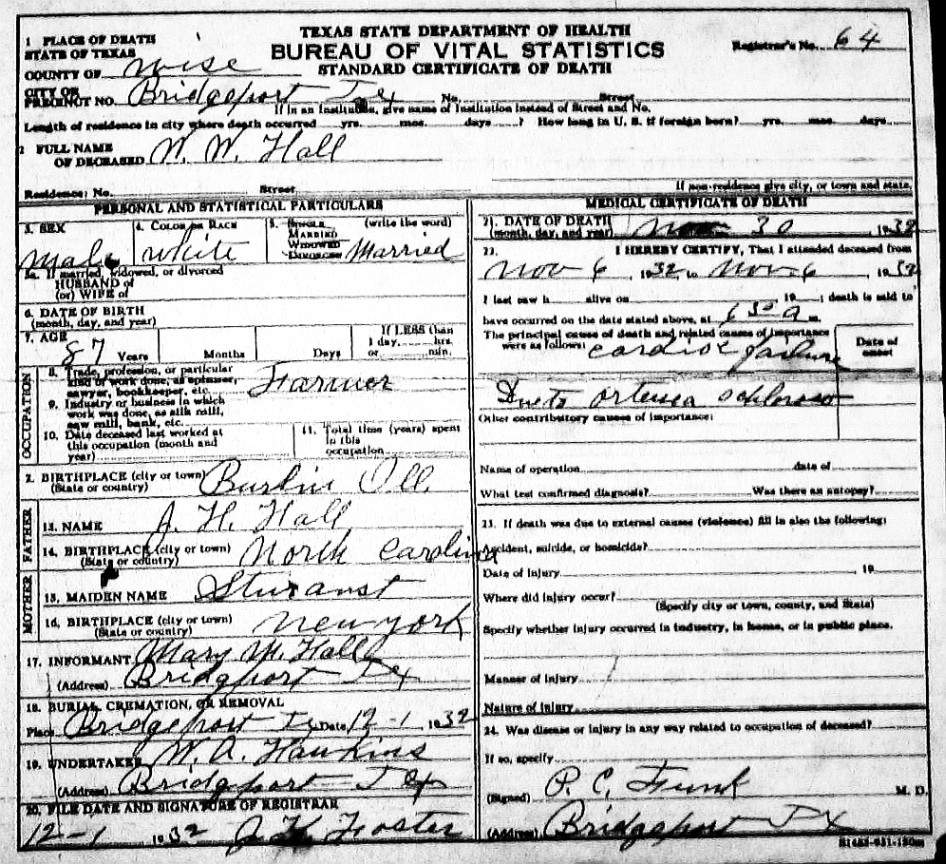 TEXAS STATE DEPARTMENT OF HEALTH
BUREAU OF VITAL STATISTICS
STANDARD CERTIFICATE OF DEATH
Registrar's No. 64
1 PLACE OF DEATH
STATE OF TEXAS
COUNTY OF Wise
CITY OR
PRECINCT NO. Bridgeport Tex No. Street
If in an Institution, give name of Institution instead of Street and No.
Length of residence in city where death occurred yrs. mos. days ? How long in U. S. if foreign born? yrs. mos. days
2 FULL NAME
OF DECEASED W. W. Hall
Residence: No. Street
If non-residence give city, or town and state.
PERSONAL AND STATISTICAL PARTICULARS
3. SEX
Male
4. COLOR OR RACE
White
5. SINGLE (write the word)
MARRIED
WIDOWED
DIVORCED Married
5a. If married, widowed, or divorced
HUSBAND of
(or) WIFE of
6. DATE OF BIRTH
(month, day, and year)
7. AGE
87 Years Months Days
If LESS than
1 day, hrs.
or min.
OCCUPATION
8. Trade, profession, or particular
kind of work done, as spinner,
sawyer, bookkeeper, etc. Farmer
9. Industry or business in which
work was done, as silk mill,
saw mill, bank, etc.
10. Date deceased last worked at
this occupation (month and
year)
11. Total time (years) spent
in this
occupation
2. BIRTHPLACE (city or town)
(State or country)
FATHER
13. NAME J. H. Hall
14. BIRTHPLACE (city or town)
(State or country) North Carolina
MOTHER
15. MAIDEN NAME
16. BIRTHPLACE (city or town)
(State or country) New York
17. INFORMANT Mary M. Hall
(Address) Bridgport Tex
18. BURIAL, CREMATION, OR REMOVAL
Place Bridgeport Tx Date 12-1 1932
19. UNDERTAKER W. A. Hawkins
(Address) Bridgeport Tex
20. FILE DATE AND SIGNATURE OF REGISTRAR
12-1 1932 Foster
MEDICAL CERTIFICATE OF DEATH
21. DATE OF DEATH
(month, day, and year) Nov 30 1932
22. I HEREBY CERTIFY, That I attended deceased from
Nov 6 1932 to Nov 6 1932
I last saw h alive on 19 ; death is said to
have occurred on the date stated above, at 6 30 a m.
The principal cause of death and related causes of importance
were as follows: cardiac failure
Date of
onset
Due to
Other contributory causes of importance:
Name of operation date of
What test confirmed diagnosis? Was there an autopsy?
23. If death was due to external causes (violence) fill in also the following:
Accident, suicide, or homicide?
Date of injury 19
Where did injury occur?
(Specify city or town, county, and State)
Specify whether injury occurred in industry, in home, or in public place.
Manner of injury
Nature of injury
24. Was disease or injury in any way related to occupation of deceased?
If so, specify
(Signed) P. C. Funk M. D.
(Address) Bridgeport Tx